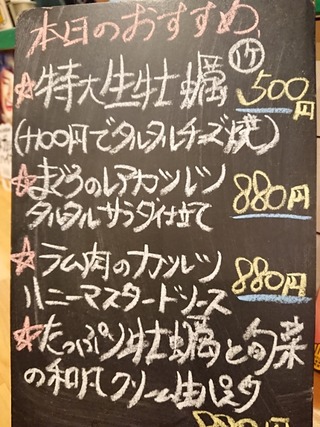 本日のおすすめ
☆特大生牡蠣 1ケ 500円
(+100円でタルタルチーズ焼)
☆まぐろのレアカツレツ
タルタルサラダ仕立て 880円
☆ラム肉のカツレツ
ハニーマスタードソース 880円
☆たっぷり牡蠣と旬菜
の和風クリーム生パスタ